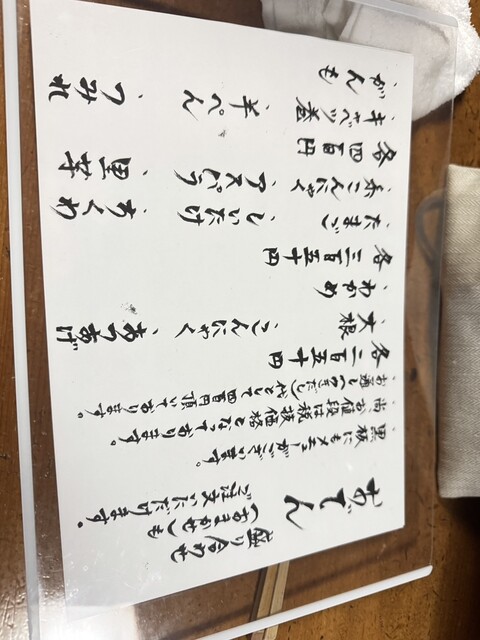 おでん
盛り合わせ
(おまかせ)も
ご注文いただけます。
・黒板にもメニューがございます。
・尚お値段は税抜価格となっております。
・お通し(つきだし)代として四百円頂いております。
各二百五十円
・大根 ・こんにゃく ・あつあげ
・わかめ
各三百五十円
・たまご ・しいたけ ・ちくわ
・赤こんにゃく ・アスパラ ・里芋
各四百円
・キャベツ巻 ・半ぺん ・つみれ
・がんも